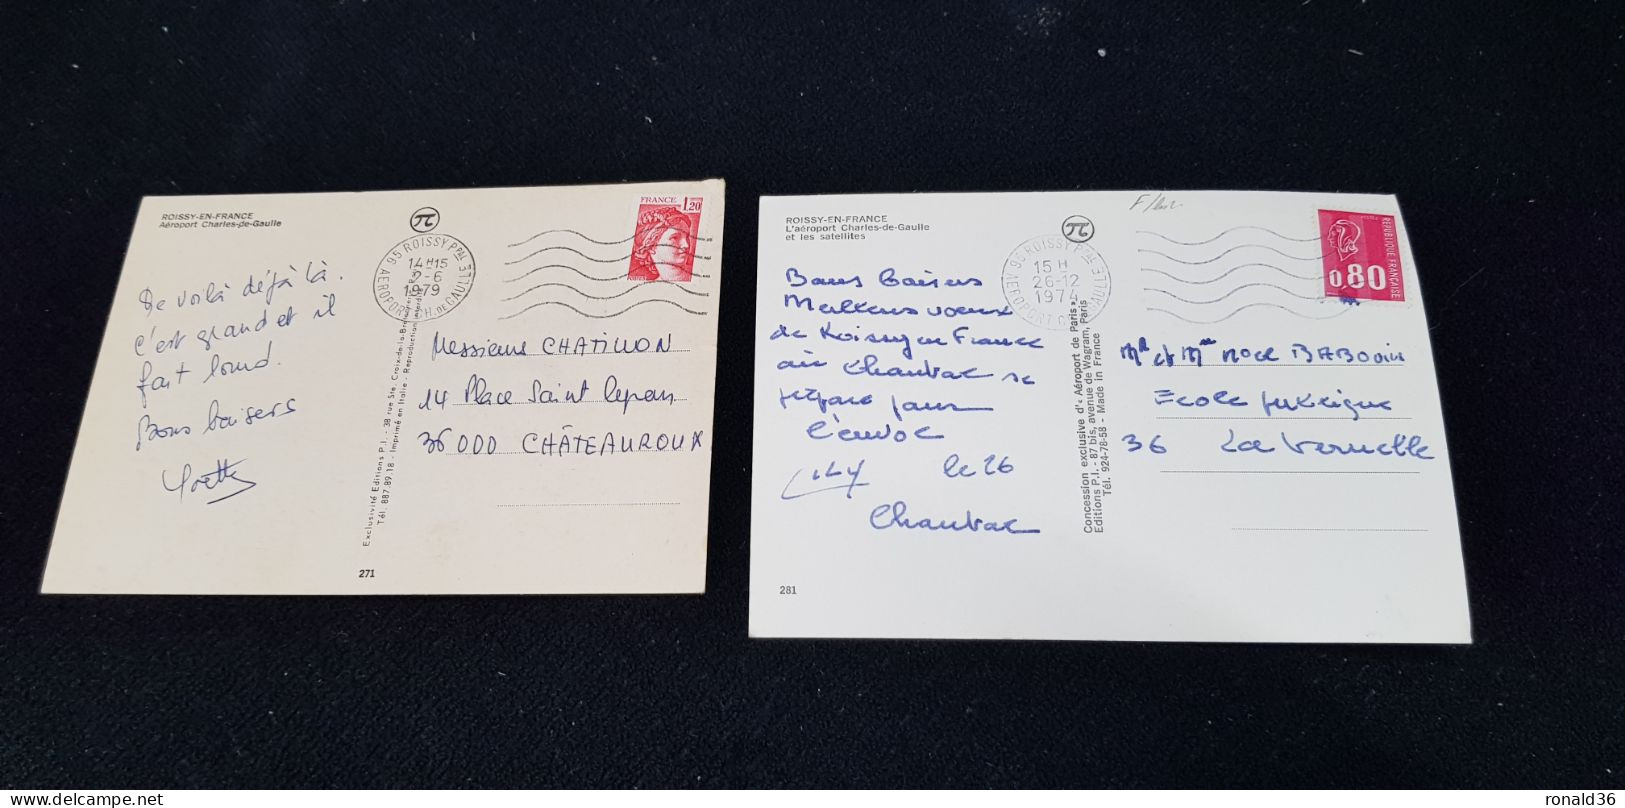 ROISSY-EN-FRANCE
Aéroport Charles-de-Gaulle
De voilà déjà là.
c'est grand et il
fait lourd.
Bons baisers
Yvette
271
Exclusivité Editions P.I. - 38 rue Ste. Croix-de-la-Bretonnerie Paris
Tél. 887.89.18 - Imprimé en Italie - Reproduction interdite
95 ROISSY PPAL
14H15
2-6
1979
AEROPORT CH. DE GAULLE
FRANCE 1,20
Messieurs CHATILLON
14 Place Saint Cyran
36000 CHÂTEAUROUX
ROISSY-EN-FRANCE
L'aéroport Charles-de-Gaulle
et les satellites
Bons baisers
Meilleurs voeux
de Roissy en France
se
pour
l'envol
Lily le 26
281
Concession exclusive d'« Aéroport de Paris »
Editions P.I. - 87 bis, avenue de Wagram, Paris
Tél. 924-78-58 - Made in France
95 ROISSY PPAL
15 H
26-12
1974
AEROPORT CH. DE GAULLE
REPUBLIQUE FRANCAISE
0,80
Mr et Mme Noel BABOUIN
Ecole publique
36 La Vernelle
ronald36